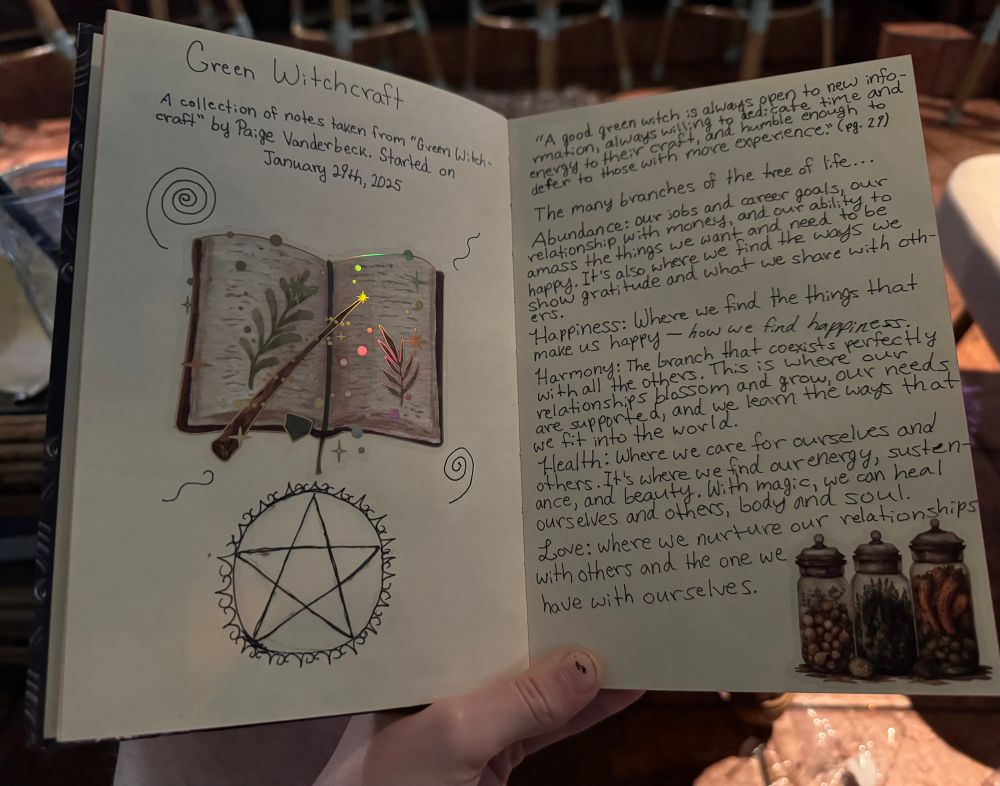 Green Witchcraft
A collection of notes taken from "Green Witch-
craft" by Paige Vanderbeck. Started on
January 29th, 2025
"A good green witch is always open to new info-
rmation, always willing to dedicate time and
energy to their craft, and humble enough to
defer to those with more experience." (pg. 29)
The many branches of the tree of life...
Abundance: our jobs and career goals, our
relationship with money, and our ability to
amass the things we want and need to be
happy. It's also where we find the ways we
show gratitude and what we share with oth-
ers.
Happiness: Where we find the things that
make us happy — how we find happiness.
Harmony: The branch that coexists perfectly
with all the others. This is where our
relationships blossom and grow, our needs
are supported, and we learn the ways that
we fit into the world.
Health: Where we care for ourselves and
others. It's where we find our energy, susten-
ance, and beauty. With magic, we can heal
ourselves and others, body and soul.
Love: where we nurture our relationships
with others and the one we
have with ourselves.